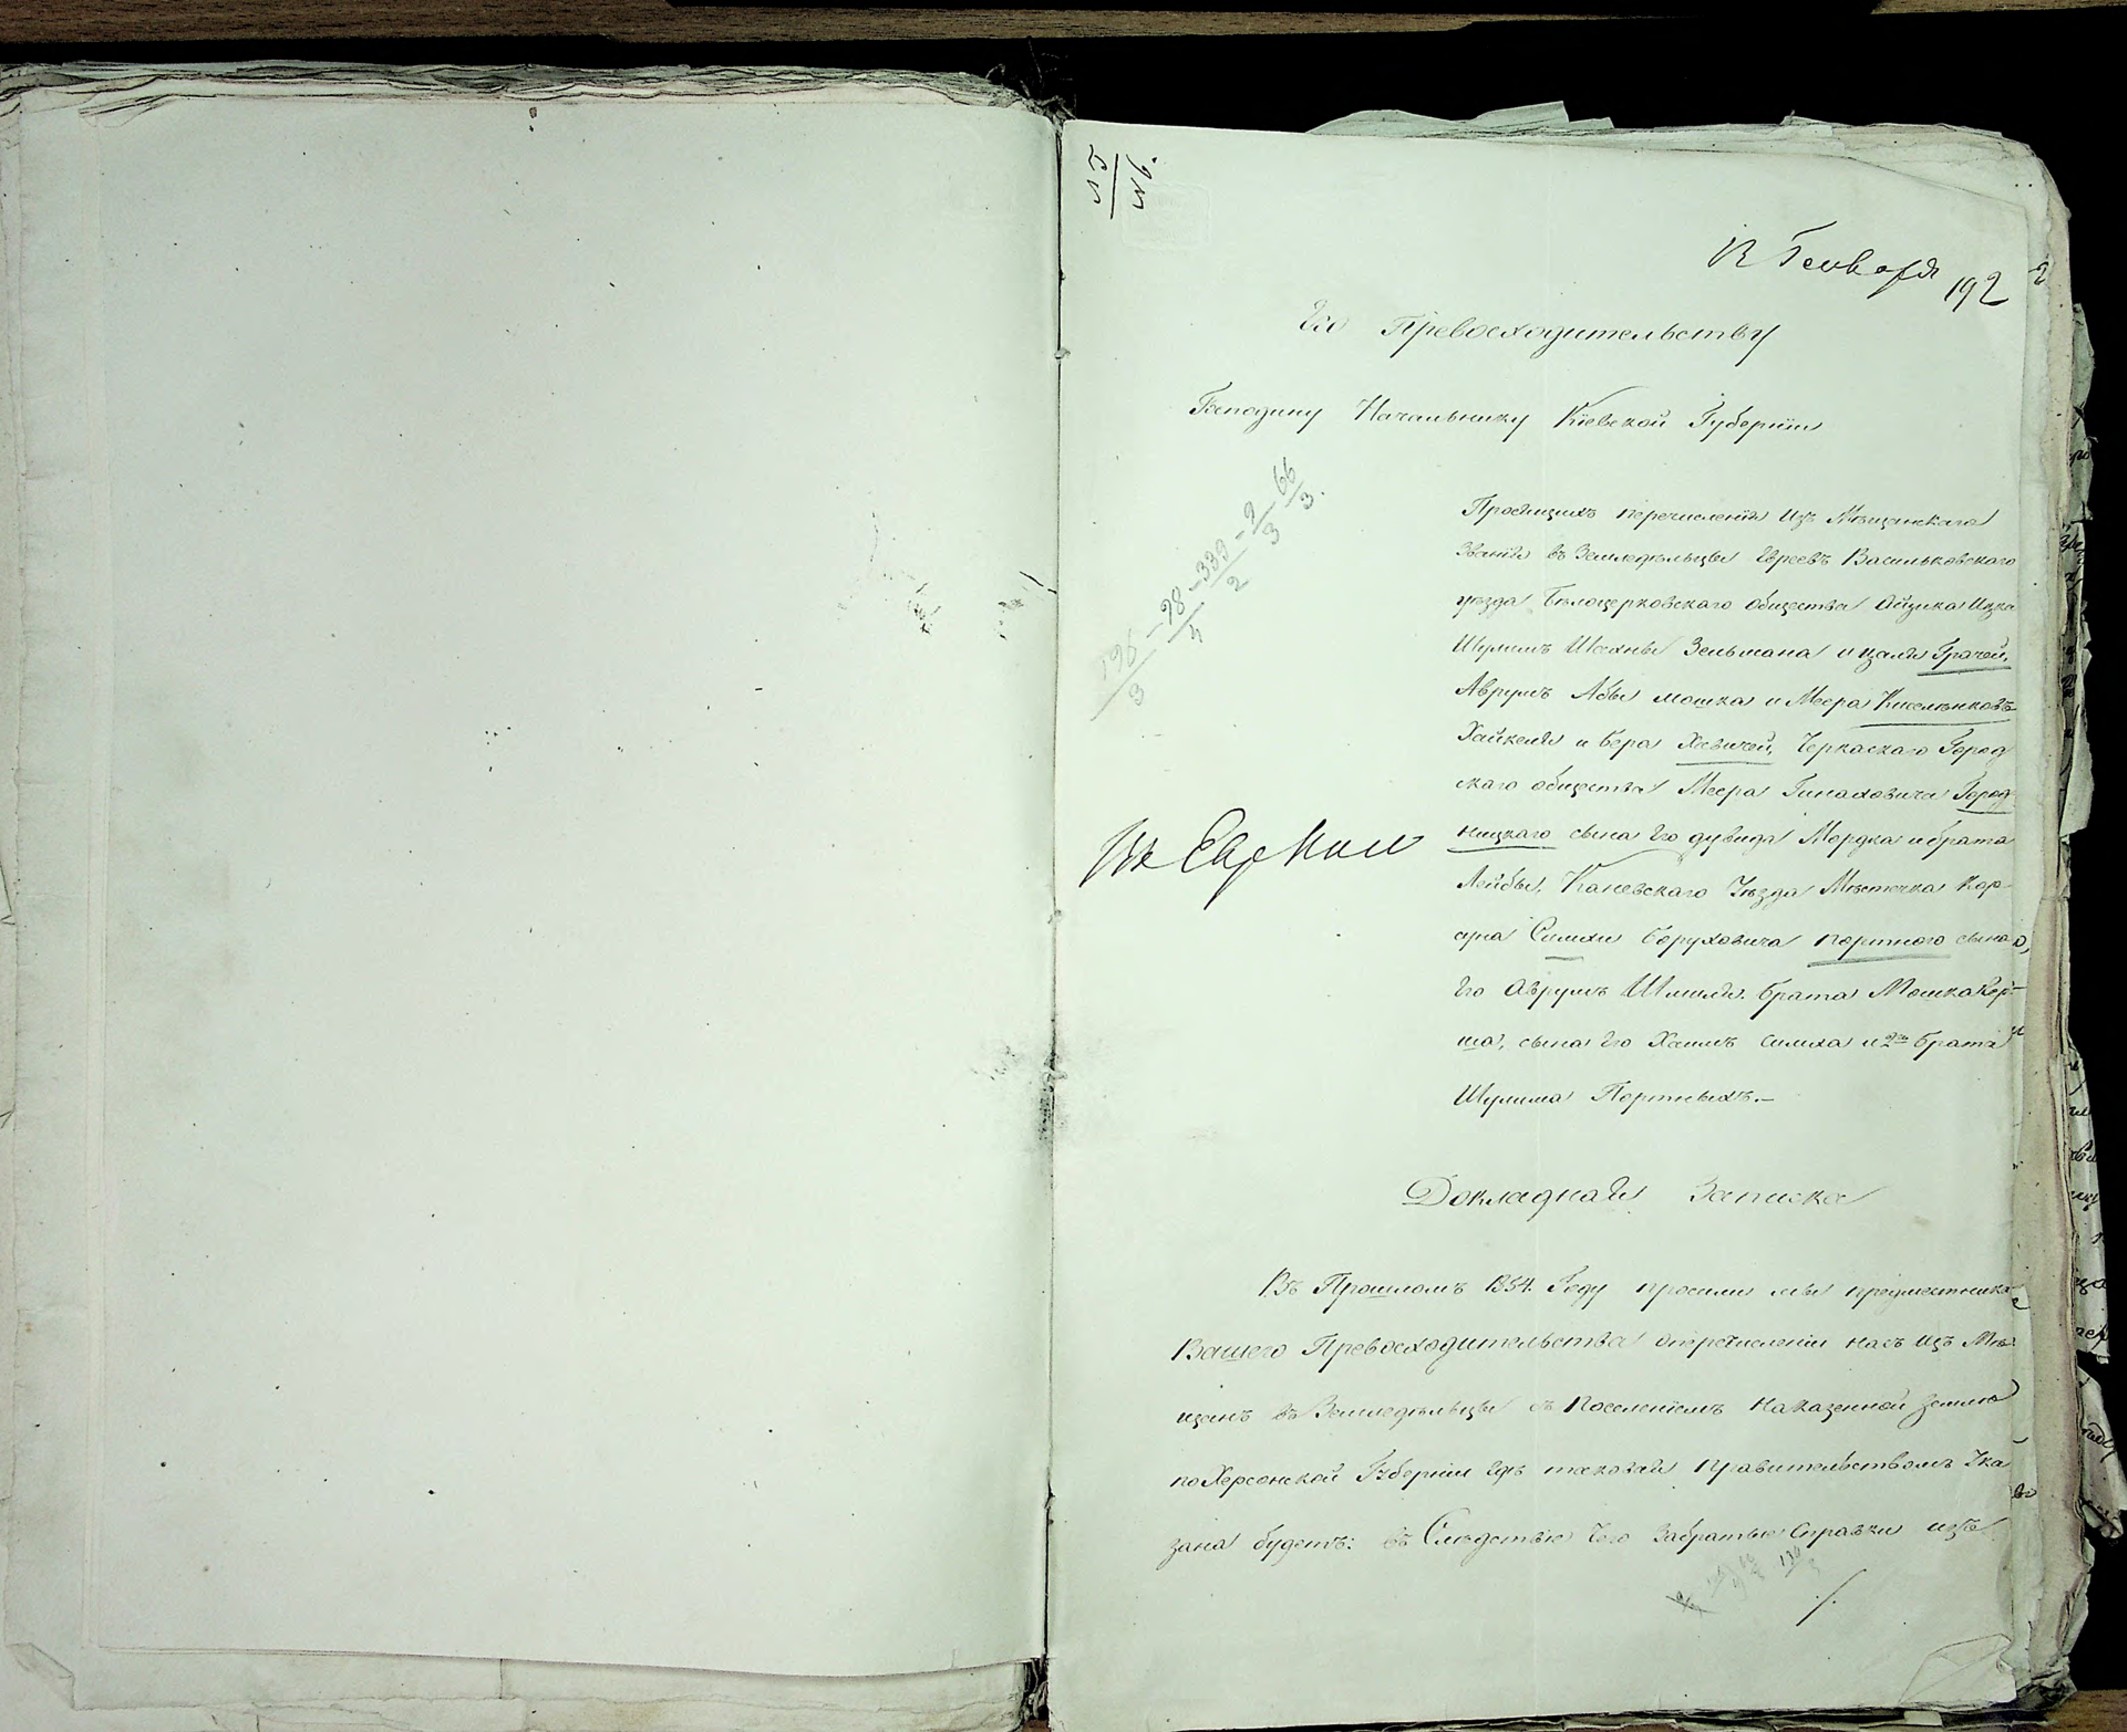 12 Генваря
192
2
Его Превосходительству
Господину Начальнику Кіевской Губерніи
196/3 – 98/4 – 339/2 – 9/3 66/3.
Просящихъ перечисленія изъ Мѣщанскаго
Званія въ Земледѣльцы Евреевъ Васильковскаго
уѣзда Бѣлоцерковскаго общества Айзика Ицка
Шулимъ Шахны Зельмана и Грачей,
Аврумъ Абы мошка и Меера Кисельковъ
Хайкеля и Бера Хавичей, Черкаскаго Город
скаго общества Меера Город
ницкаго сына Его Мордка и брата
Лейбы, Каневскаго Уѣзда Мѣстечка Кор-
суна Симхи Боруховича портного сына
Его Аврумъ Шмиля. брата Мошка Гер-
ша, сына Его Хаимъ Симха и 2го брата
Шулима Портныхъ.—
Въ Евр Кои
Докладная Записка
Въ Прошломъ 1854. Году просили мы предместника
Вашего Превосходительства оперечисленіи насъ изъ Мѣ-
щанъ въ Земледѣльцы съ Поселеніемъ Наказенной Землю
по Херсонской Губерніи гдѣ таковая Правительствомъ Ука
зана будетъ: въ Слѣдствіе Чего Забратые Справки изъ
./.